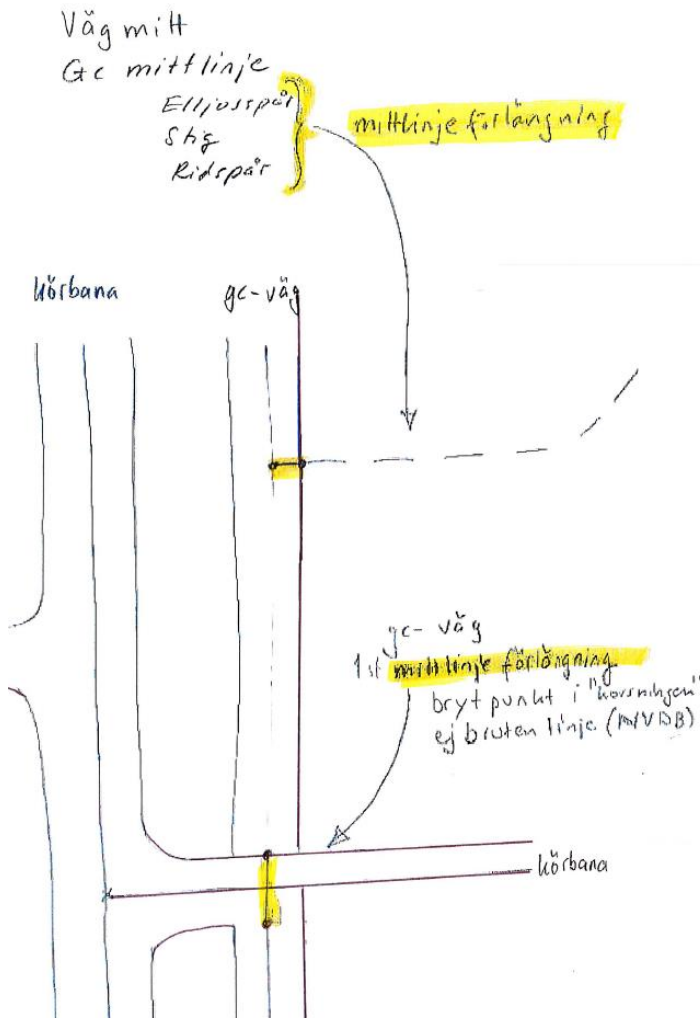 Väg mitt
Gc mittlinje
Elljusspår
Stig
Ridspår
mittlinje förlängning
körbana
gc-väg
gc-väg
1st mittlinje förlängning
brytpunkt i "korsningen"
ej bruten linje (NVDB)
körbana